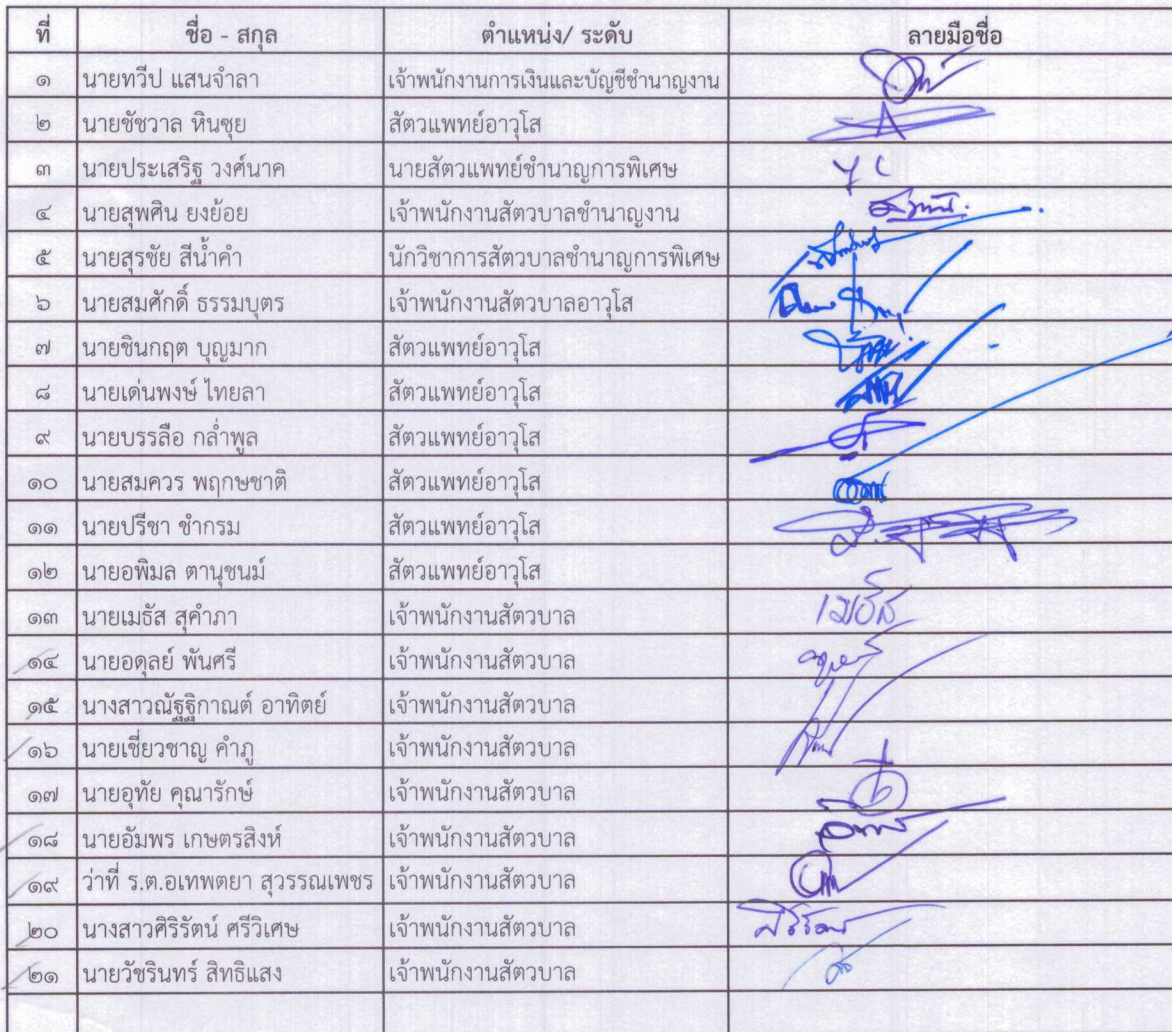 ที่ ชื่อ - สกุล ตำแหน่ง/ ระดับ ลายมือชื่อ
๑ นายทวีป แสนจำลา เจ้าพนักงานการเงินและบัญชีชำนาญงาน
๒ นายชัชวาล หินซุย สัตวแพทย์อาวุโส
๓ นายประเสริฐ วงศ์นาค นายสัตวแพทย์ชำนาญการพิเศษ
๔ นายสุพศิน ยงย้อย เจ้าพนักงานสัตวบาลชำนาญงาน
๕ นายสุรชัย สีน้ำคำ นักวิชาการสัตวบาลชำนาญการพิเศษ
๖ นายสมศักดิ์ ธรรมบุตร เจ้าพนักงานสัตวบาลอาวุโส
๗ นายชินกฤต บุญมาก สัตวแพทย์อาวุโส
๘ นายเด่นพงษ์ ไทยลา สัตวแพทย์อาวุโส
๙ นายบรรลือ กล่ำพูล สัตวแพทย์อาวุโส
๑๐ นายสมควร พฤกษชาติ สัตวแพทย์อาวุโส
๑๑ นายปรีชา ชำกรม สัตวแพทย์อาวุโส
๑๒ นายอพิมล ตานุชนม์ สัตวแพทย์อาวุโส
๑๓ นายเมธัส สุคำภา เจ้าพนักงานสัตวบาล เมธัส
๑๔ นายอดุลย์ พันศรี เจ้าพนักงานสัตวบาล
๑๕ นางสาวณัฐฐิกาณต์ อาทิตย์ เจ้าพนักงานสัตวบาล
๑๖ นายเชี่ยวชาญ คำภู เจ้าพนักงานสัตวบาล
๑๗ นายอุทัย คุณารักษ์ เจ้าพนักงานสัตวบาล
๑๘ นายอัมพร เกษตรสิงห์ เจ้าพนักงานสัตวบาล
๑๙ ว่าที่ ร.ต.อเทพตยา สุวรรณเพชร เจ้าพนักงานสัตวบาล
๒๐ นางสาวศิริรัตน์ ศรีวิเศษ เจ้าพนักงานสัตวบาล ศิริรัตน์
๒๑ นายวัชรินทร์ สิทธิแสง เจ้าพนักงานสัตวบาล